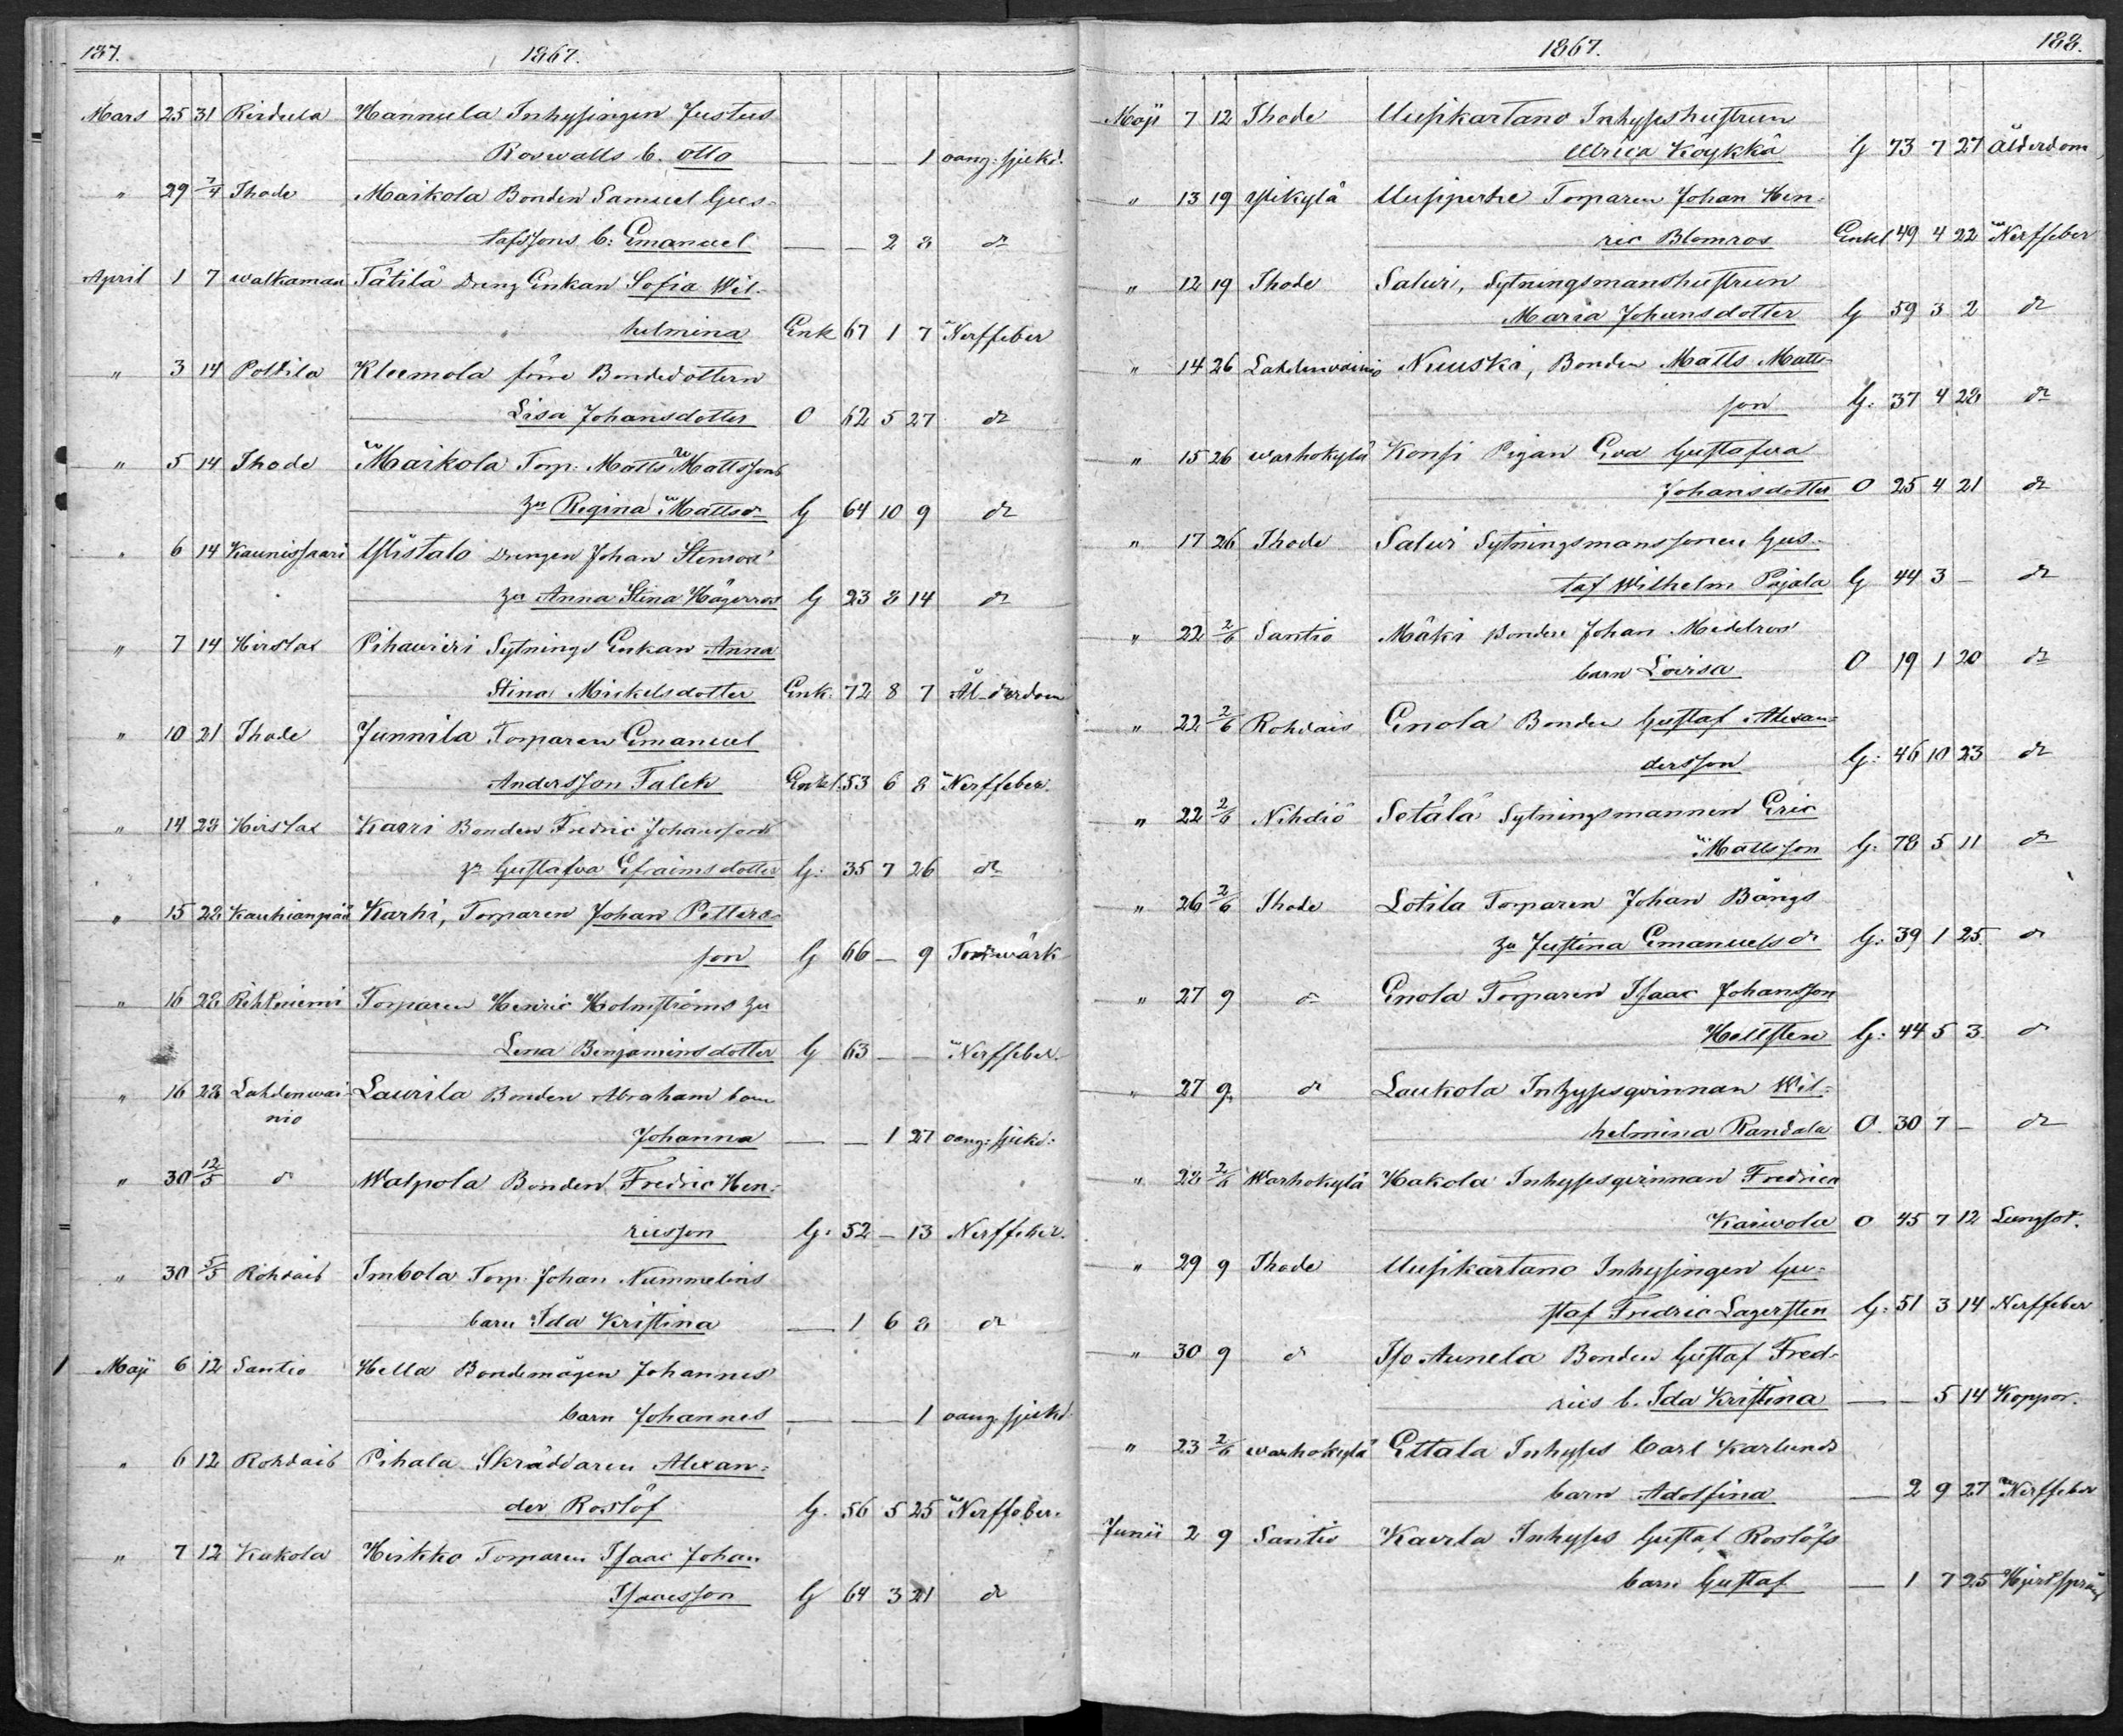 187. 1867.
Mars 25 31 Rirdula Hannula Inhysingen Justus
Roswalls b. Otto — — — 1 oang. sjukd.
" 29 7/4 Ihode Maikola Bonden Samuel Gus-
tafssons b: Emanuel — — 2 8 do
April 1 7 walkamaa Tätilä Dreng Enkan Sofia Wil-
helmina Enk 67 1 7 Nerffeber
" 3 14 Polttila Kleemola förre Bondedottern
Lisa Johansdotter O 62 5 27 do
" 5 14 Ihode Maikola Torp. Matts Mattssons
hu Regina Mattsdr G 64 10 9 do
" 6 14 Kaunissaari Ylistalo Drengen Johan Stenros'
hu Anna Stina Hägerros G 23 8 14 do
" 7 14 Hirslax Pihawiiri Sytnings Enkan Anna
Stina Mickelsdotter Enk: 72 8 7 Ålderdom
" 10 21 Ihode Junnila Torparen Emanuel
Andersson Falck Enkl. 53 6 8 Nerffeber.
" 14 28 Hirslax Kaari Bonden Fredric Johanssons
hu Gustafva Efraimsdotter G: 35 7 26 do
" 15 28 Kauhianpää Karhi, Torparen Johan Petters-
son G 66 — 9 Torrwärk
" 16 28 Rihtniemi Torparen Henric Holmströms hu
Lena Benjaminsdotter G 63 — — Nerffeber.
" 16 28 Lahdenwai-
nio Laurila Bonden Abraham barn
Johanna — — 1 27 oang: sjukd:
" 30 12/5 do Walpola Bonden Fredric Hen-
ricsson G: 52 — 13 Nerffeber.
" 30 5/5 Rohdais Imbola Torp. Johan Nummelins
barn Ida Kristina — 1 6 8 do
1 Maji 6 12 Santio Hella Bondemågen Johannes
barn Johannes — — — 1 oang. sjukd.
" 6 12 Rohdais Pihala Skräddaren Alexan-
der Roslöf G. 56 5 25 Nerffeber.
" 7 12 Kukola Heikko Torparen Isaac Johan
Isacsson G 64 3 21 do
1867. 188.
Maji 7 12 Ihode Uusikartano Inhyseshustrun
Ulrica Köykkä G 73 7 27 Ålderdom
" 13 19 Ylikylä Uusipertte Torparen Johan Hen-
ric Blomros Enkl 49 4 22 Nerffeber
" 12 19 Ihode Saluri, Sytningsmanshustrun
Maria Johansdotter G 59 3 2 do
" 14 26 Lahdenwainio Nuuski, Bonden Matts Matts-
son G. 37 4 28 do
" 15 26 warhokylä Konsi Pigan Eva Gustafva
Johansdotter O 25 4 21 do
" 17 26 Ihode Saluri Sytningsmanssonen Gus-
taf Wilhelm Pajala G 44 3 — do
" 22 2/6 Santio Mäki Bonden Johan Medelros'
barn Lovisa O 19 1 20 do
" 22 2/6 Rohdais Enola Bonden Gustaf Alexan-
dersson G: 46 10 23 do
" 22 2/6 Nihdiö Setälä Sytningsmannen Eric
Mattsson G. 78 5 11 do
" 26 2/6 Ihode Lotila Torparen Johan Bångs
hu Justina Emanuelsdr G: 39 1 25. do
" 27 9 do Enola Torparen Isaac Johansson
Hellsten G: 44 5 3. do
" 27 9 do Laukola Inhysesqvinnan Wil-
helmina Randala O. 30 7 — do
" 28 2/6 Warhokylä Hakola Inhysesqvinnan Fredrica
Kaiwola O 45 7 12 Lungsot.
" 29 9 Ihode Uusikartano Inhysingen Gu-
staf Fredric Lagersten G: 51 3 14 Nerffeber
" 30 9 do Iso Aunela Bonden Gustaf Fred-
rics b. Ida Kristina — — 5 14 Koppor.
" 23 2/6 warhokylä Ettala Inhyses Carl Karlunds
barn Adolfina — 2 9 27 Nerffeber
Junii 2 9 Santio Kaurla Inhyses Gustaf Roslöfs
barn Gustaf — 1 7 25 Hjertsprång